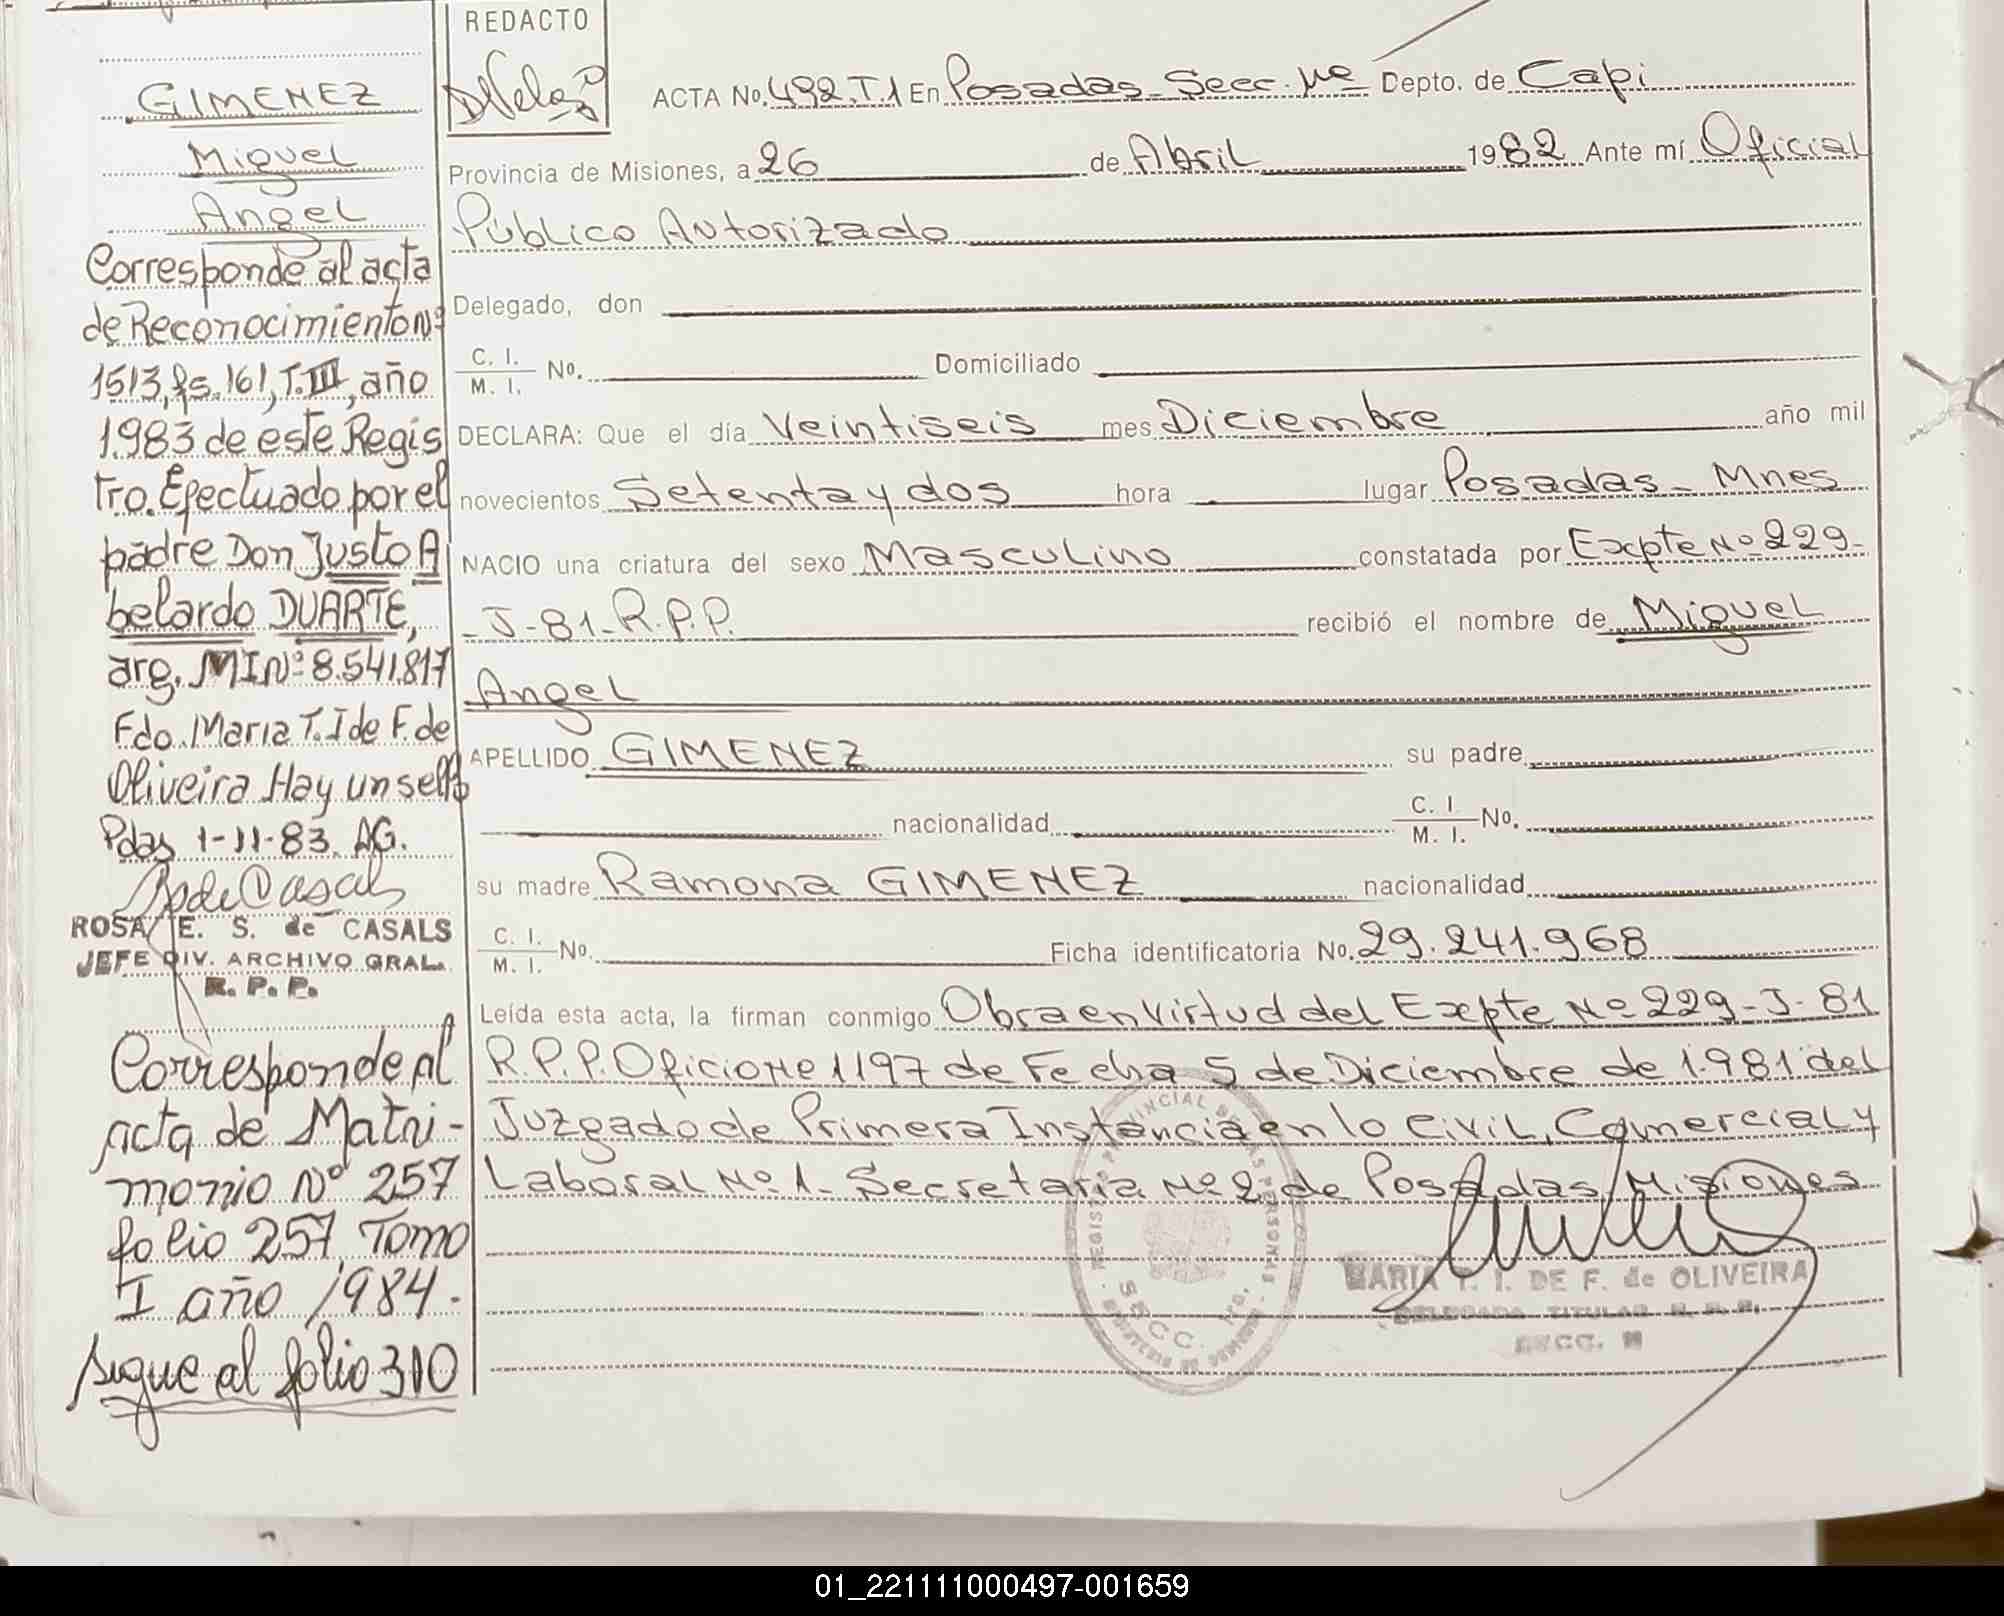 GIMENEZ
Miguel
Angel
Corresponde al acta
de Reconocimiento Nº
1513, fs. 161, T. III, año
1.983 de este Regis
tro. Efectuado por el
padre Don Justo A
belardo DUARTE,
arg. MI Nº 8.541.817
Fdo. Maria T. I de F. de
Oliveira Hay un sello
Pdas 1-11-83. AG.
ROSA E. S. de CASALS
JEFE DIV. ARCHIVO GRAL.
R. P. P.
Corresponde al
acta de Matri-
monio Nº 257
folio 257 Tomo
I año 1984.-
sigue al folio 310
REDACTO
ACTA No. 492. T.1 En Posadas - Secc. Mº Depto. de Capi
Provincia de Misiones, a 26 de Abril 1982 Ante mí Oficial
Público Autorizado
Delegado, don
C. I. / M. I. No. Domiciliado
DECLARA: Que el día Veintiseis mes Diciembre año mil
novecientos Setenta y dos hora lugar Posadas - Mnes
NACIO una criatura del sexo Masculino constatada por Excpte Nº 229-
-J-81-R.P.P. recibió el nombre de Miguel
Angel
APELLIDO GIMENEZ su padre
nacionalidad C. I. / M. I. No.
su madre Ramona GIMENEZ nacionalidad
C. I. / M. I. No. Ficha identificatoria No. 29.241.968
Leída esta acta, la firman conmigo Obra en virtud del Excpte Nº 229-J-81
R.P.P. Oficio Nº 1197 de Fecha 5 de Diciembre de 1.981 del
Juzgado de Primera Instancia en lo Civil, Comercial y
Laboral Nº 1- Secretaria Nº 2 de Posadas Misiones
REGISTRO PROVINCIAL DE LAS PERSONAS
SECC.
MARIA T. I. DE F. de OLIVEIRA
DELEGADA TITULAR R. P. P.
SECC. M
01_221111000497-001659